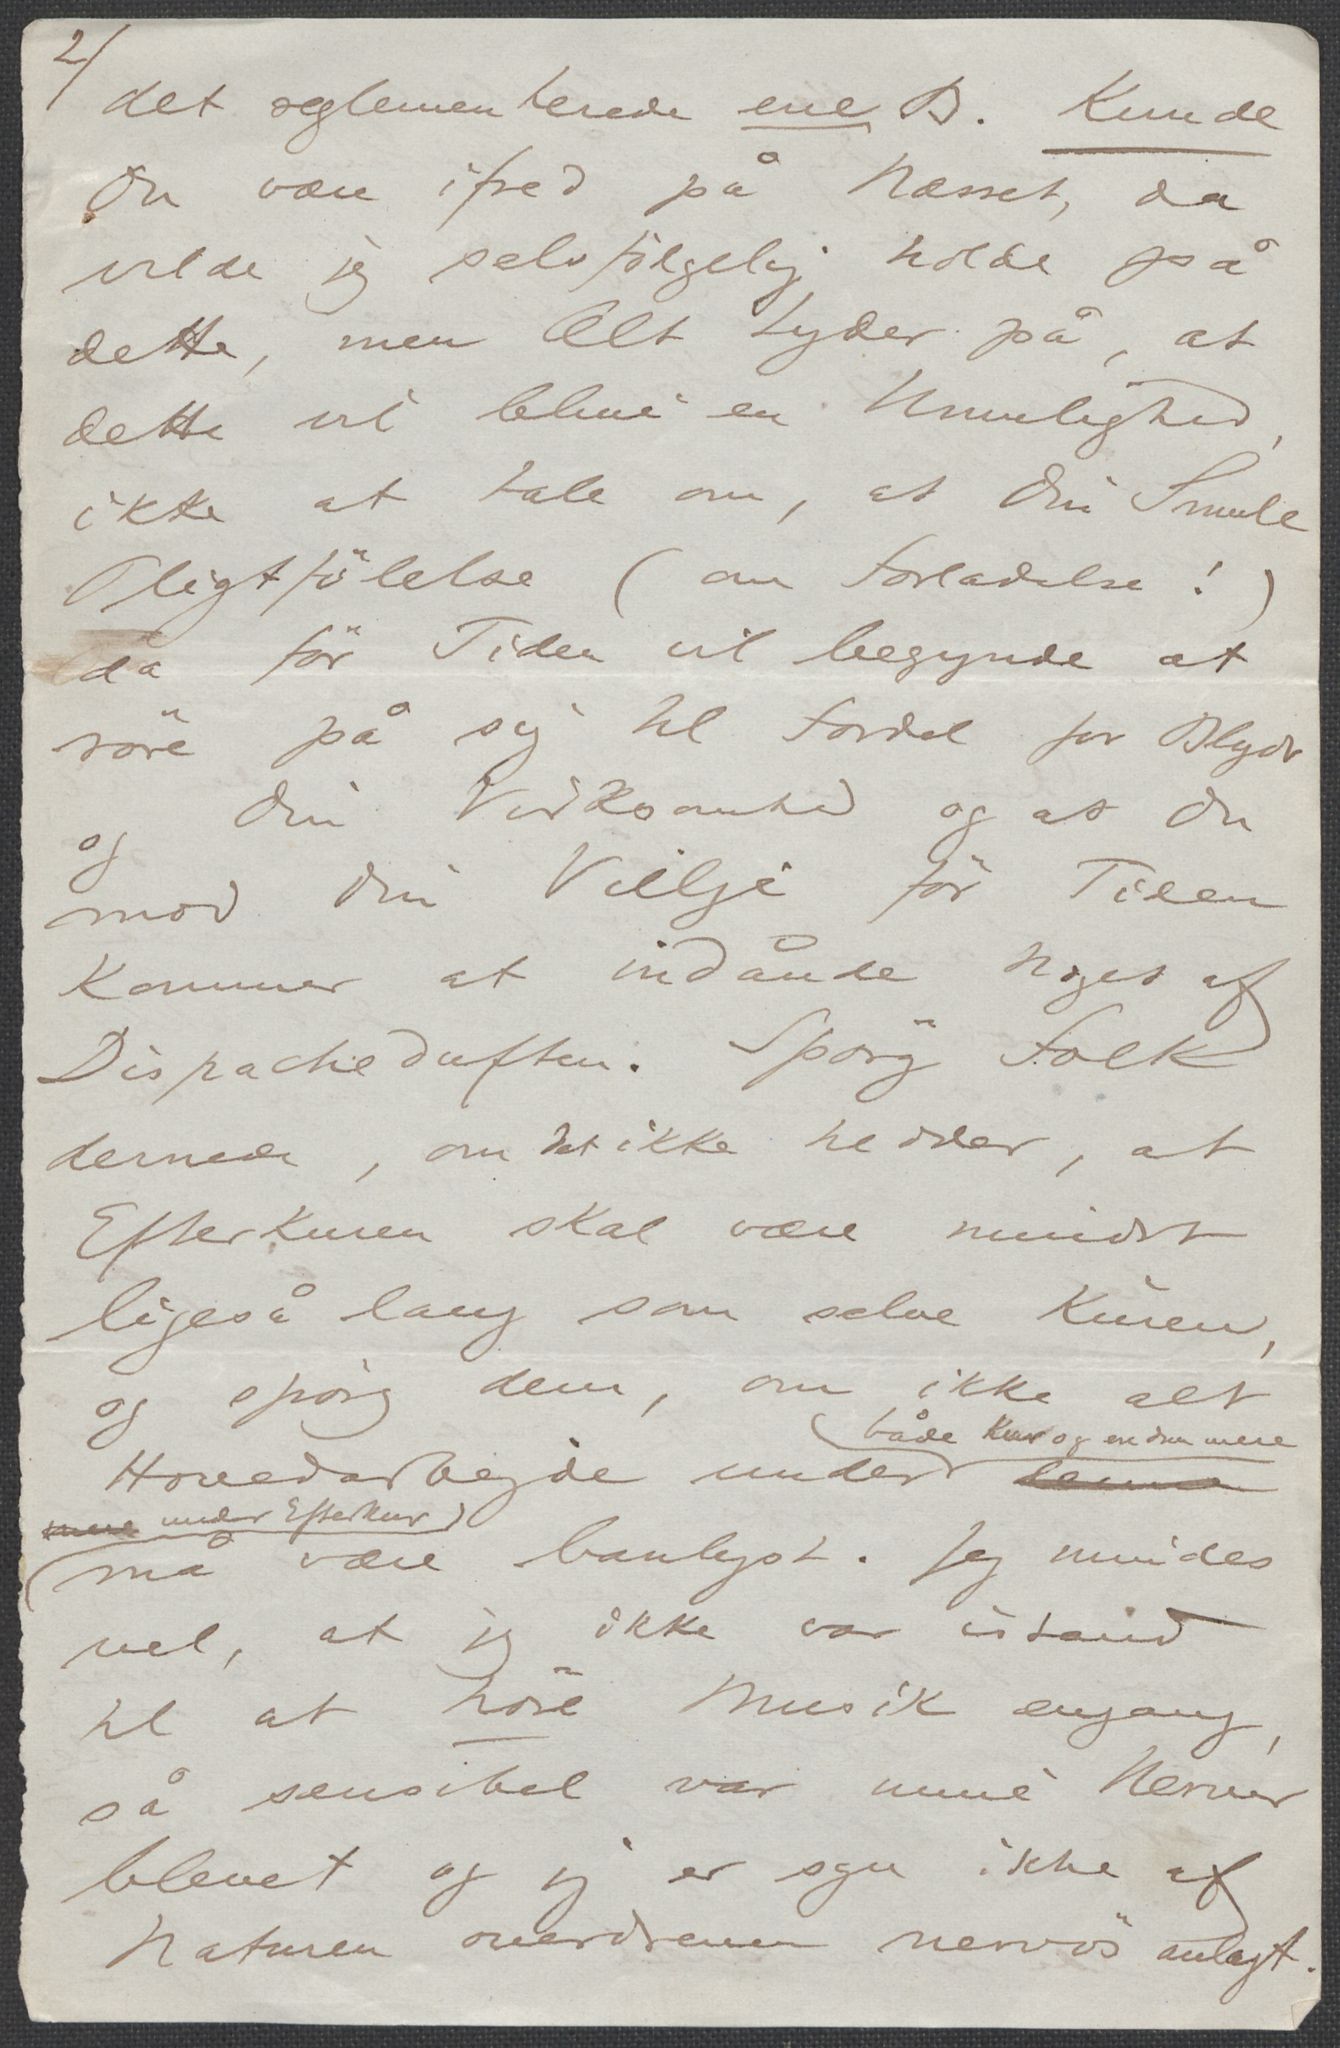 2/
det reglementerede ene B. Kunde
Du være ifred på Næsset, da
vilde jeg selvfölgelig holde på
dette, men Alt tyder på, at
dette vil blive en Umulighed,
ikke at tale om, at din Smule
Pligtfölelse (om Forladelse!)
da för Tiden vil begynde at
röre på sig til Fordel for Blydt
og din Virksomhed og at Du
mod din Vilje för Tiden
kommer at indånde Noget af
Dispacheduften. Spörg Folk
dernede, om det ikke hedder, at
Efterkuren skal være mindst
ligeså lang som selve Kuren,
og spörg dem, om ikke alt
både Kur og endnu mere
Hovedarbejde under denne
mere under Efterkur
må være banlyst. Jeg mindes
vel, at jeg ikke var istand
til at höre Musik engang,
så sensibel var mine Nerver
blevet og jeg er sgu ikke af
Naturen overdreven nervös anlagt.